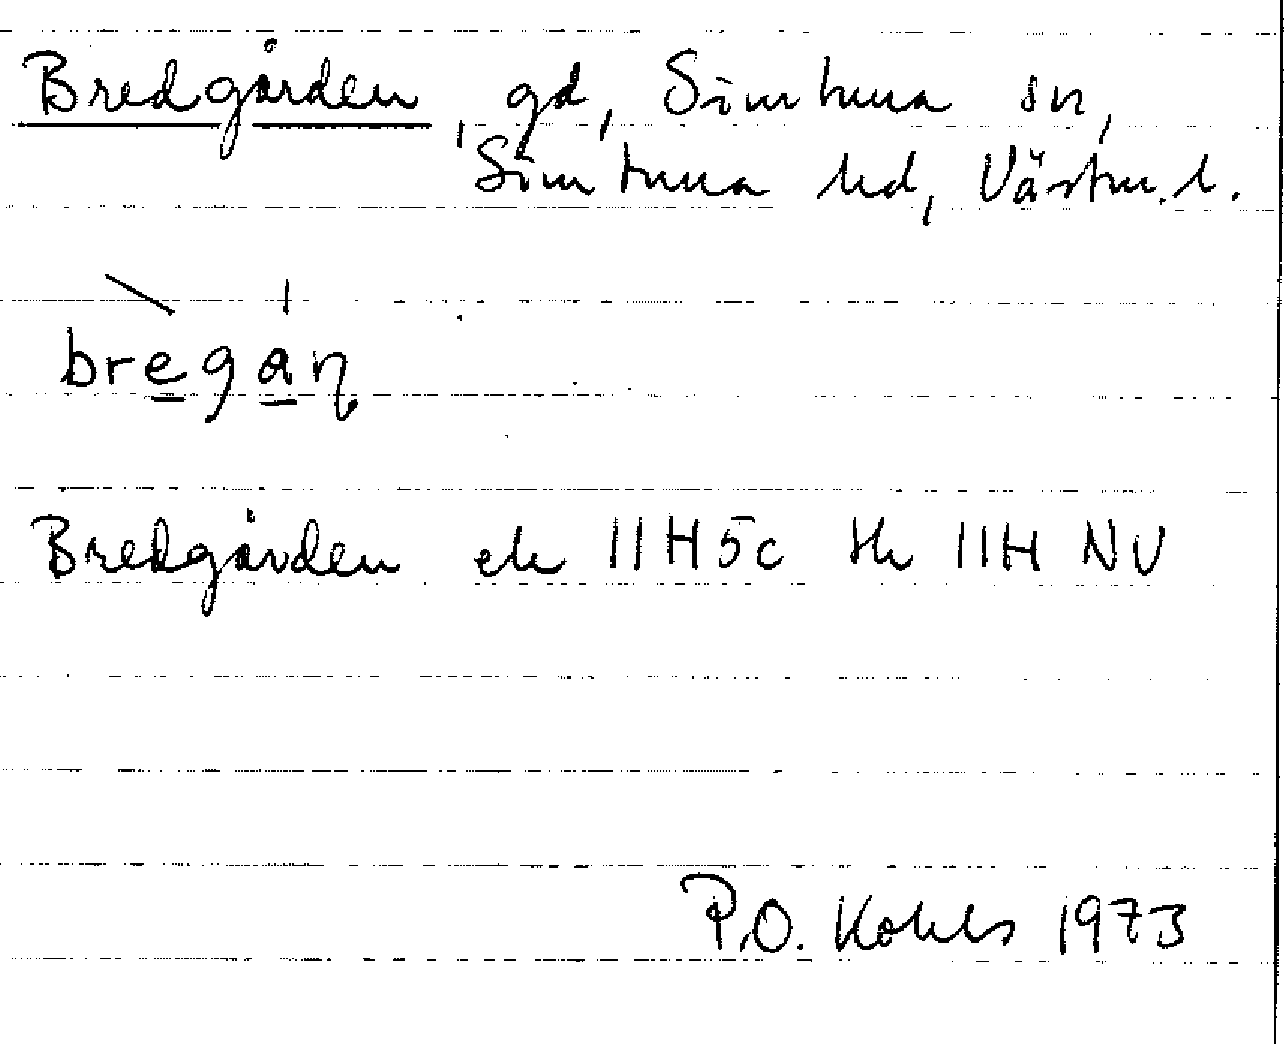 Bredgården, gd, Simtuna sn,
Simtuna hd, Västm. l.
bregan
Bredgården ek 11H5c tk 11H NV
P.O. Kohls 1973